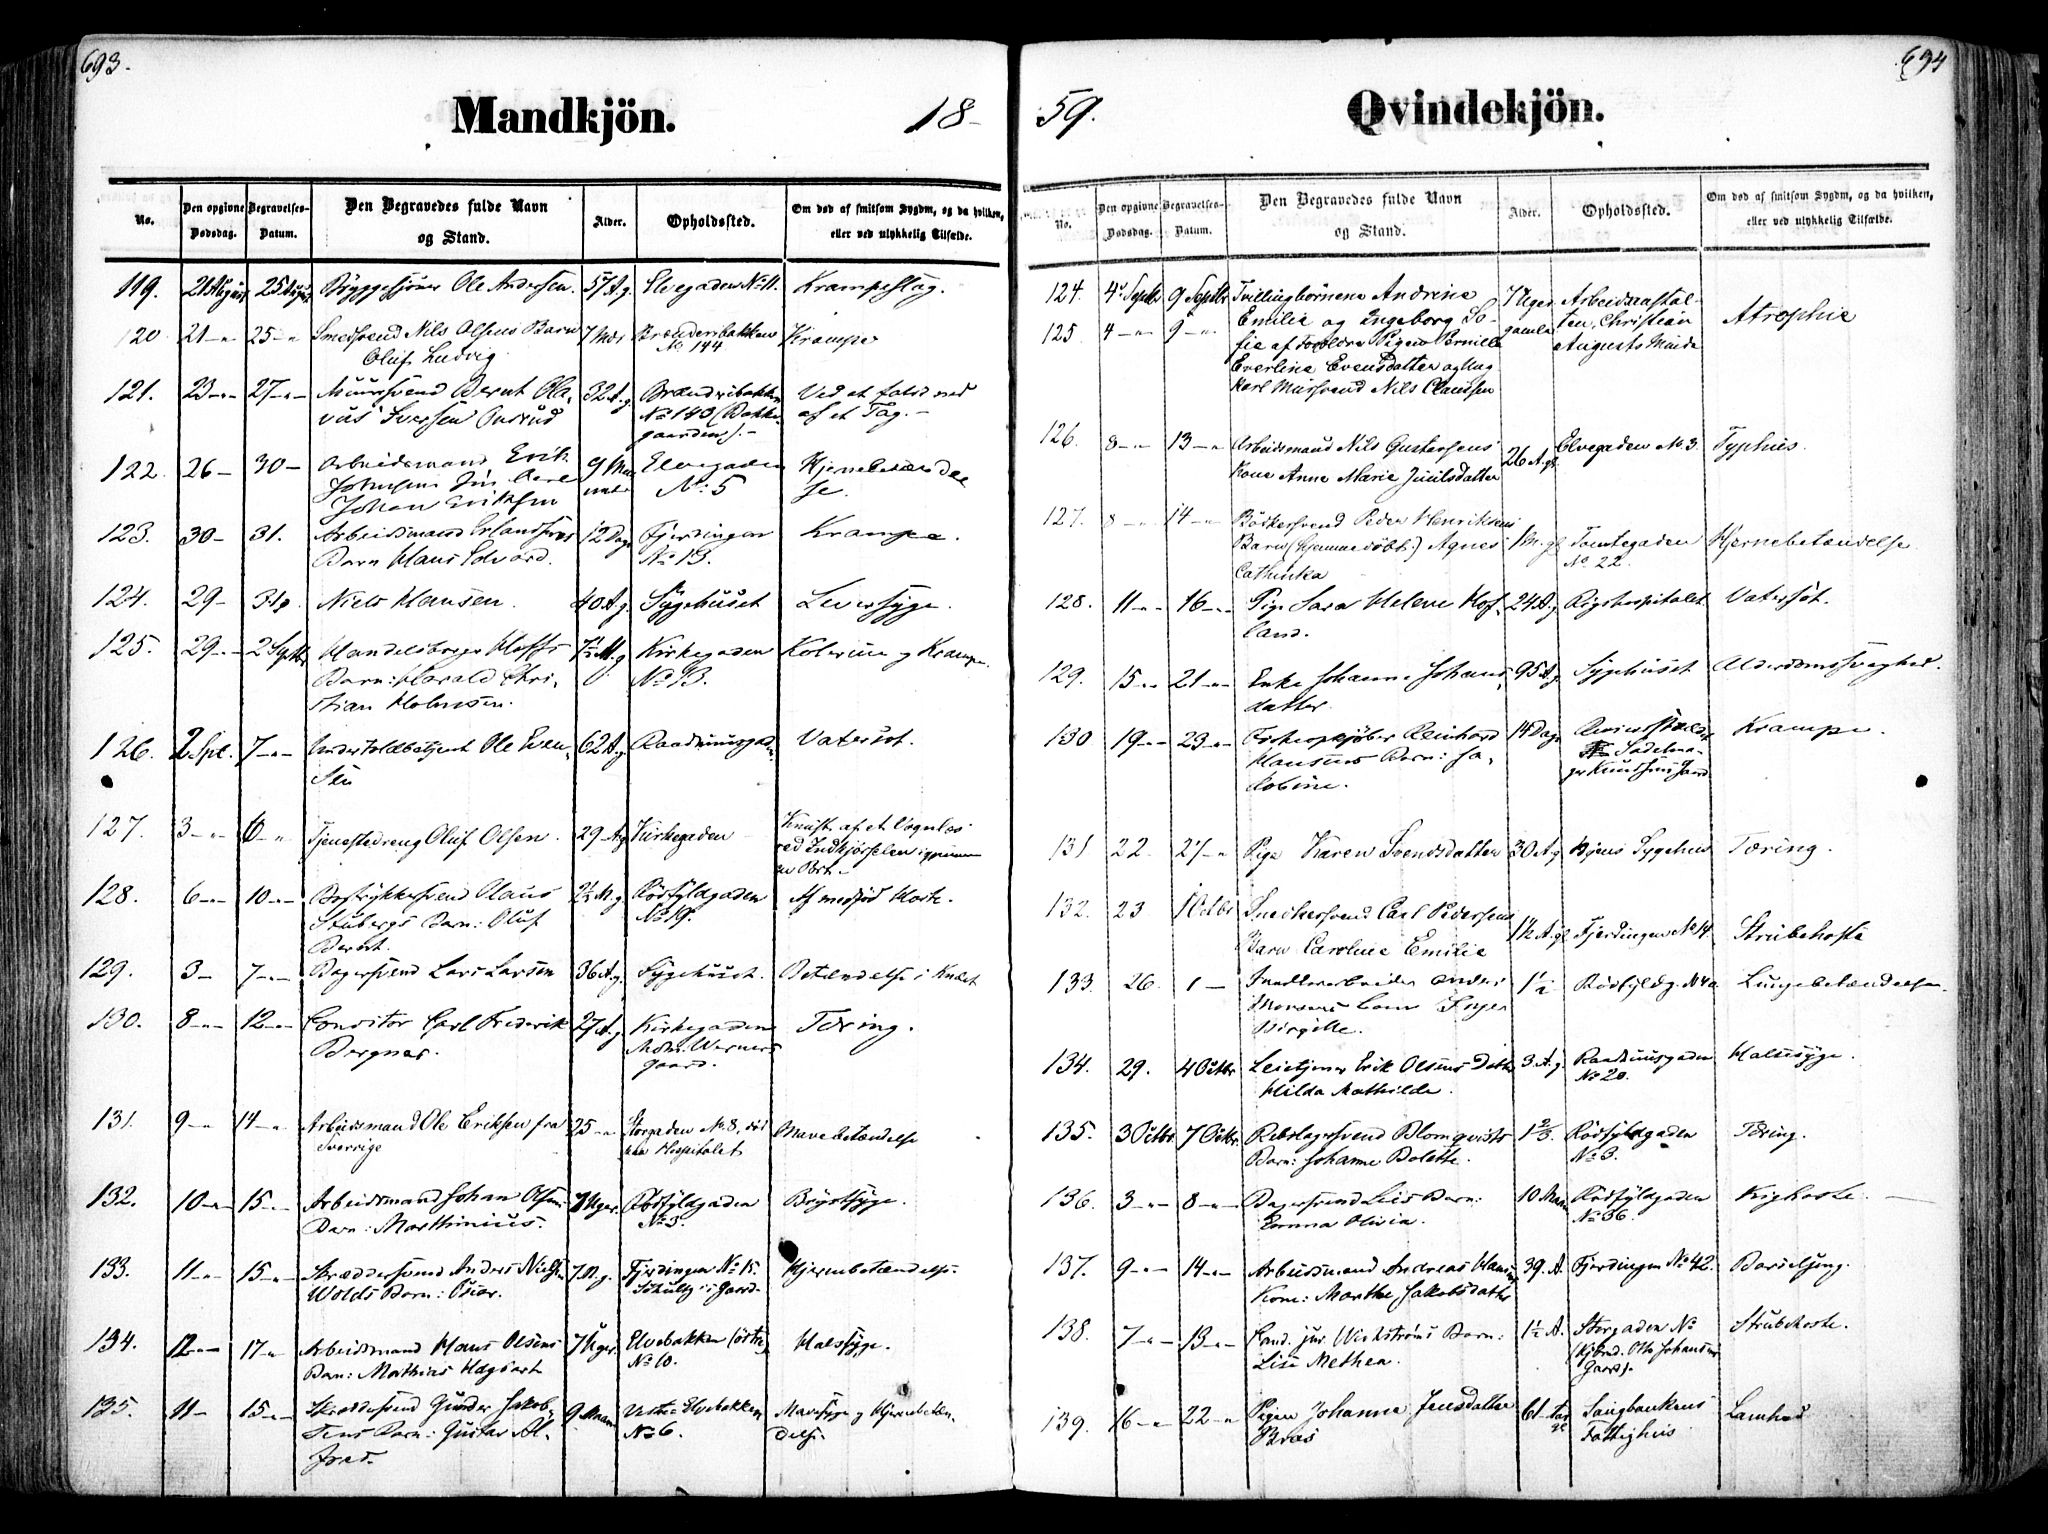 693.
Mandkjön.
18-
No.
Den opgivne Dødsdag.
Begravelses-Datum.
Den Begravedes fulde Navn og Stand.
Alder.
Opholdssted.
Om død af smitsom Sygdm, og da hvilken, eller ved ulykkelig Tilfælde.
119. 21 August 25 August Bryggesjouer Ole Andersen. 57 A. g. Elvegaden No 11. Krampeslag.
120 21 -"- 25 -"- Smedsvend Nils Olsens Barn 7 Mdr Brænderibakken Krampe
Oluf Ludvig No 144
121. 23 -"- 27 -"- Muursvend Bernt Ola- 32 A. g Brænderibakken Ved at falde ned
vus Iversen No 143 (Bakke- af et Tag. -
gaarden). -
122. 26 - 30 - Arbeidsmand Erik 9 Maa Elvegaden Hjernebetændel
Johnsens neder No: 5 se.
Johan Eriksen
123. 30 - 31. Arbeidsmand Erlandsens 12 Dage Fjerdingen Krampe.
Barn Hans Edvard. No 13.
124. 29 - 31 Niels Hansen. 40 A. g. Sygehuset Leversyge.
125. 29 -"- 2 Septbr Handelsborger Hoffs 7½ M. g Kirkegaden Kolerine og Krampe.
Barn: Harald Chri- No 13.
stian Holmsen.
126. 2 Spt. 7 -"- Undertoldbetjent Ole Even- 62 A. g Raadhuusgaden Vatersot.
sen
127. 3 -"- 6 -"- Tjenestedreng Oluf Olsen. 29 A. g Kirkegaden Knust af et Vognlæs
ved Indkjørselen igjennem
en Port. -
128. 6 -"- 10 -"- Bogtrykkersvend Olaus 2½ M. g Rødfyldgaden Af medfød Hoste.
Stubergs Barn: Oluf No 19.
Berent.
129. 3 - 7 -"- Bagersvend Lars Larsen 36 A. g. Sygehuset. Betændelse i Knæet
130. 8 -"- 12 -"- Conditor Carl Frederik 27 A. g Kirkegaden Tæring.
Bergner. Mdm: Werners
Gaard.
131. 9 -"- 14 -"- Arbeidsmand Ole Eriksen fra 25 -"- Storgaden No 8, død Mavebetændelse
Sverrige paa Hospitalet
132. 10 -"- 15 -"- Arbeidsmand Johan Olsens 7 Uger. Rødfyldgaden Brystsyge.
Barn: Marthinius. No 3.
133. 11 -"- 15 -"- Skræddersvend Anders Nielsen 7 M. g. Fjerdingen No 15. Hjernebetændelse.
Wolds Barn: Oscar. Schultz's Gaard.
134. 12 -"- 17 -" Arbeidsmand Hans Olsens 7 Uger. Elvebakken (østre) Halssyge.
Barn: Mathias Hagbart No 10.
135. 11 - 15 -"- Skræddersvend Gunder Jakob- 9 Maan Vestre Elvebakken Mavesyge og Hjernebetæn-
sens Barn: Gustav Al- No 6. delse.
fred.
694
59.
Qvindekjön.
No.
Den opgivne Dødsdag.
Begravelses-Datum.
Den Begravedes fulde Navn og Stand.
Alder.
Opholdssted.
Om død af smitsom Sygdm, og da hvilken, eller ved ulykkelig Tilfælde.
124. 4 Septbr 9 Septbr Tvillingbørnene Andrine 7 Uger Arbeidsanstal-
125. 4 -"- 9 -"- Emilie og Ingeborg So- gamle ten, Christian Atrophie
fie af Forældre Pigen Pernille Augusts Minde
Everline Evensdatter og Ung-
karl Mursvend Nils Claussen
126. 8 -"- 13 -"- Arbeidsmand Nils Gustavsens 26 A. gl. Elvegaden No 3. Typhus.
Kone Anne Marie Juulsdatter
127. 8 -"- 14 -"- Bødkersvend Peder Henriksens
Barn (hjemmedøbt:) Agnes 1 M. gl Tomtegaden Hjernebetændelse.
Cathinka No 22.
128. 11 -"- 16 -"- Pige Sara Helene Hof- 24 A. g Rigshospitalet Vatersot.
land.
129. 15 -"- 21 -"- Enke Johanne Johans- 95 A. g Sygehuset Alderdomssvaghed.
datter.
130 19 -"- 23 -"- Reinhard 14 Dage Krampe.
Hansens Barn: Ja- Sadelma-
kobine. ger Knudsens Gaard
131 22. 27 -"- Pige Karen Svendsdatter 30 A. g Byens Sygehus Tæring.
132. 23 1 Octbr Snedkersvend Carl Pedersens
Barn Caroline Emilie 1½ A. gl Fjerdingen No 14. Strubehoste
133. 26. 1 - Anders 1½ Rødfyldg. No 40 Lungebetændelsen.
Inger
Birgitte.
134. 29. 4 Octbr Leietjener Erik Olsens Datter 3 A. g. Raadhuusgaden Halssyge.
Hilda Mathilde. No 20.
135. 3 Octbr. 7 Octbr. Rebslagersvend Blomqvists 1 2/3. Rødfyldgaden Tæring.
Barn: Johanne Bolette. No 3.
136. 3 -"- 8 -"- Bagersvend Lies Barn: 10 Maan Rødfyldgaden Kighoste.
Emma Olivia. No 36.
137. 9 -"- 14 -"- Arbeidsmand Andreas Hansens 39. A. Fjerdingen No 42. Barselseng.
Kone: Marthe Jakobsdatter
138. 7 -"- 13 -"- Cand. jur. Wickstrøms Barn: 1½ A. Storgaden No Strubehoste.
Lise Methea. (Kjbmd. Otto Johansens
Gaard).
139. 16 -"- 22 -" Pigen Johanne Jensdatter 61 Aar Sangbankens Lamhed
Braas gl Fattighus